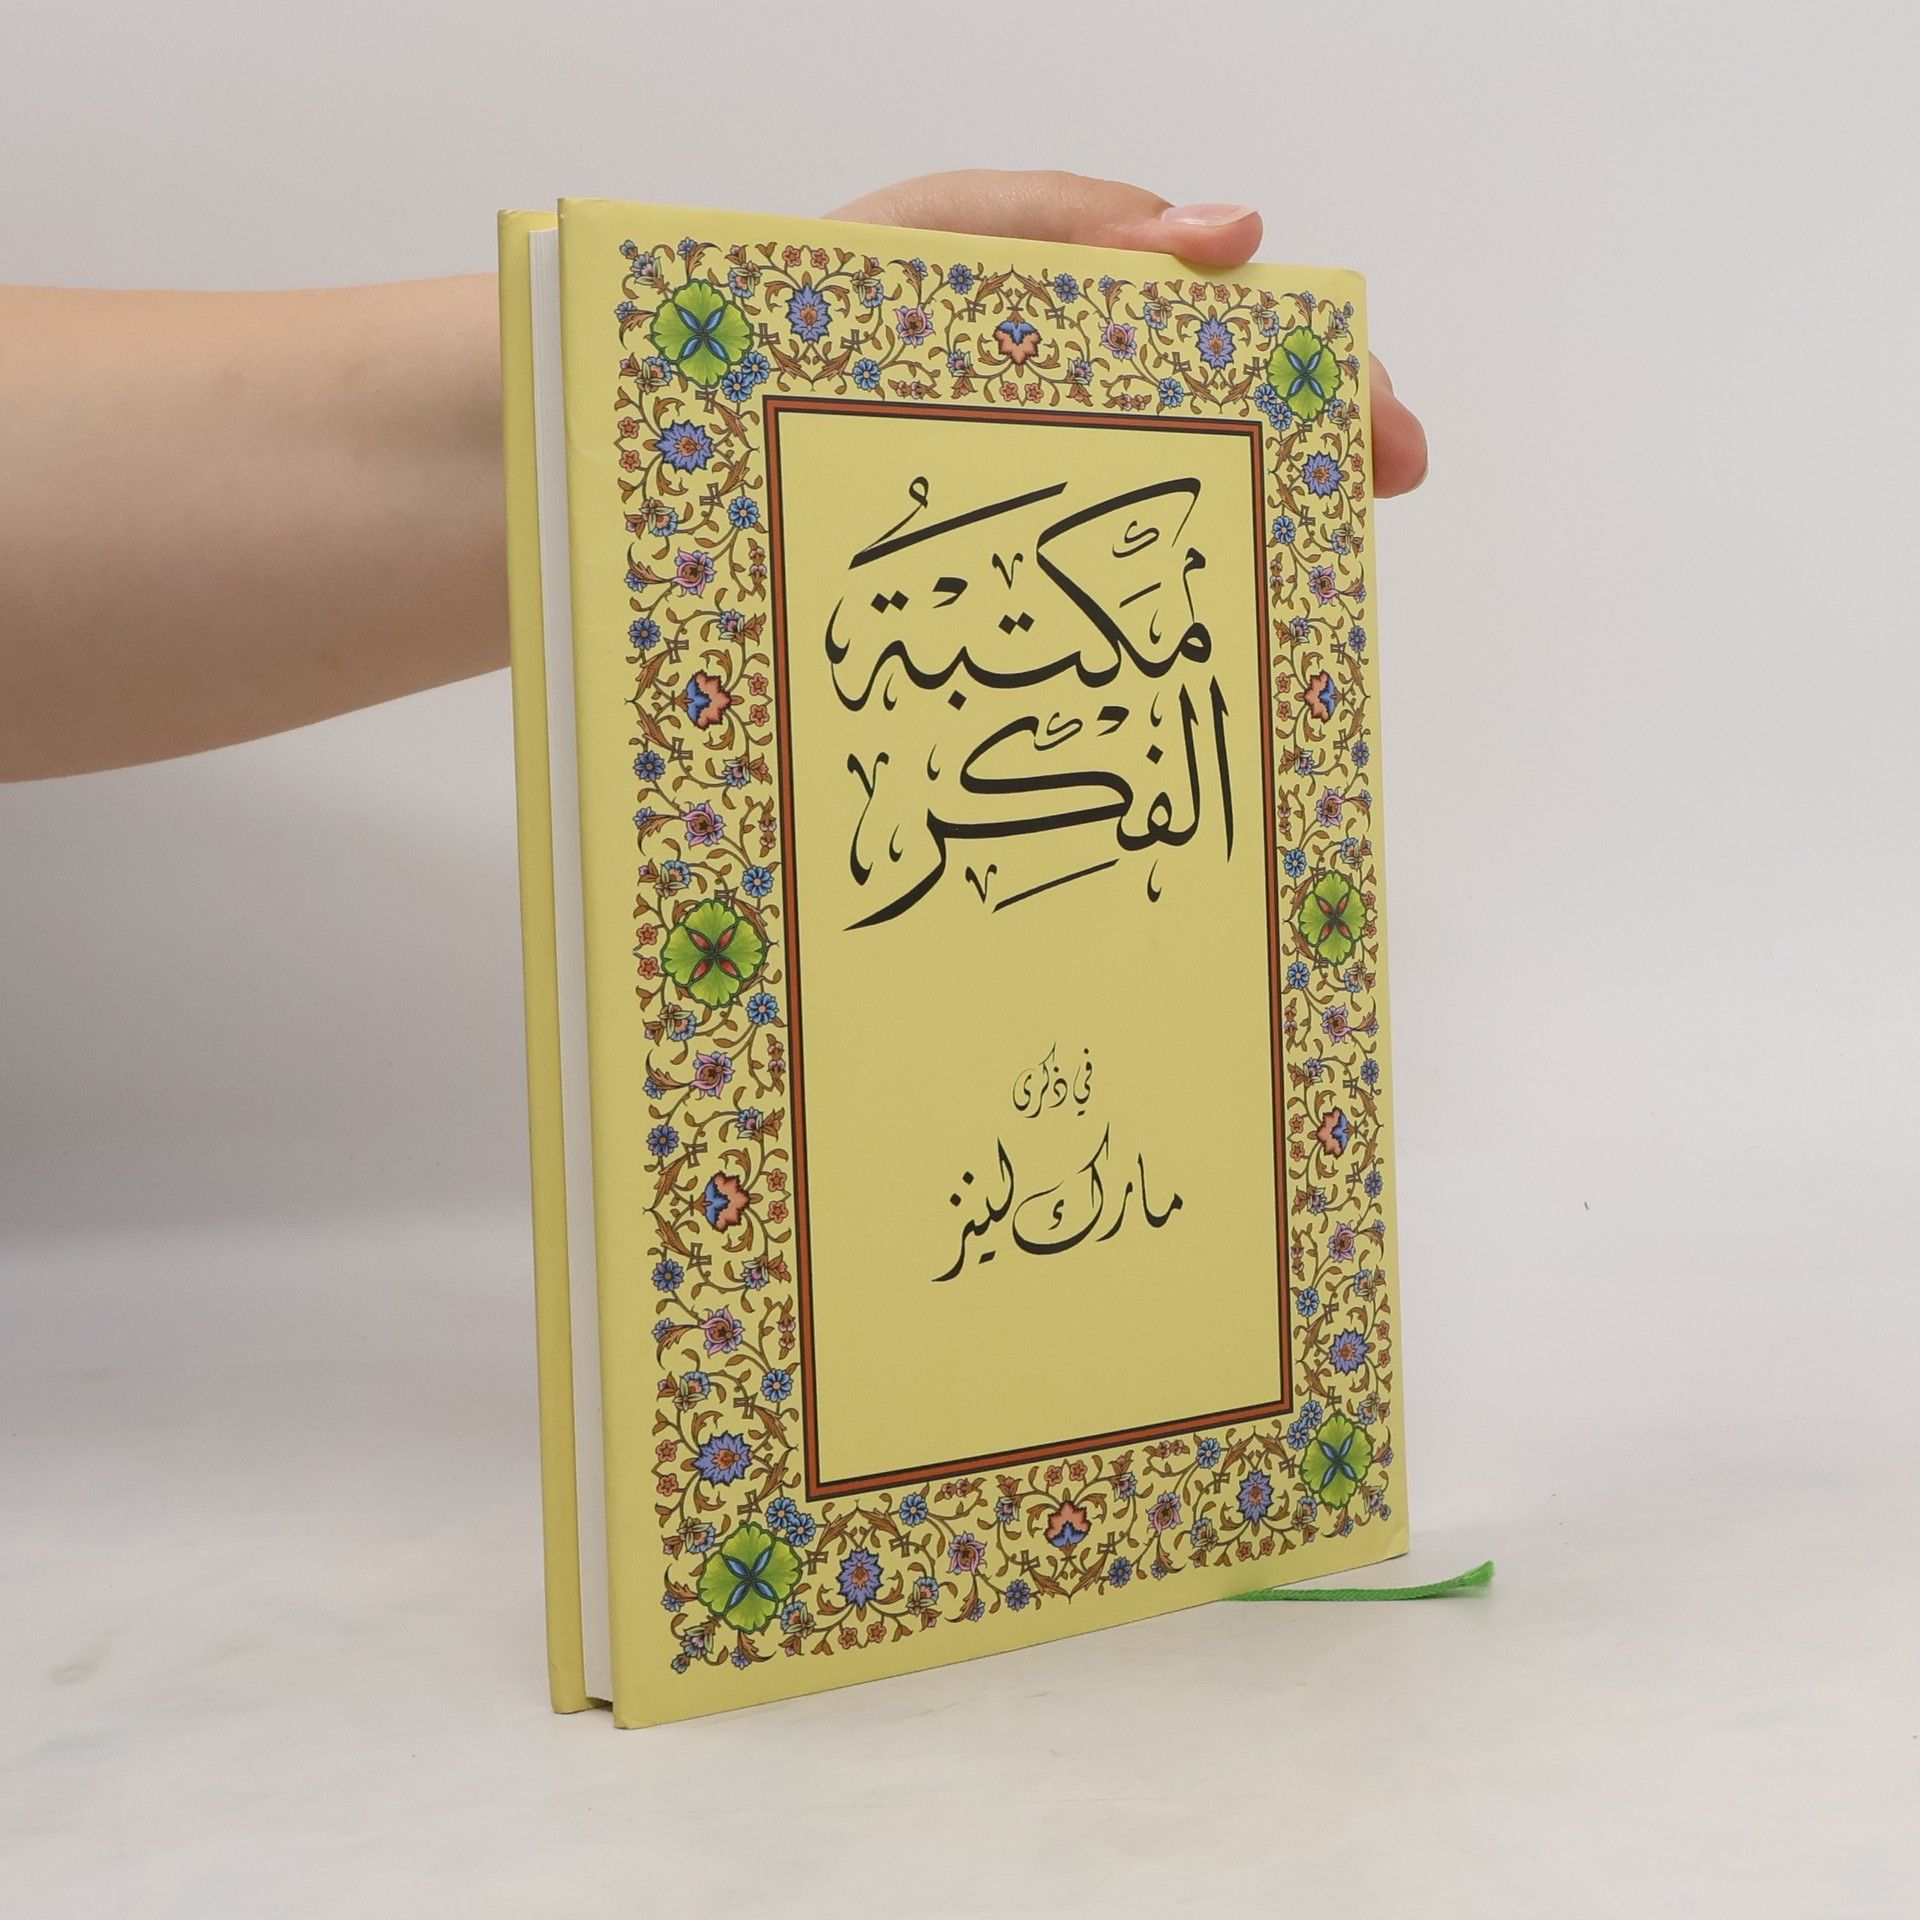 مَكْتَبَةُ
الفِكْرِ
في ذكرى
مارك لينز